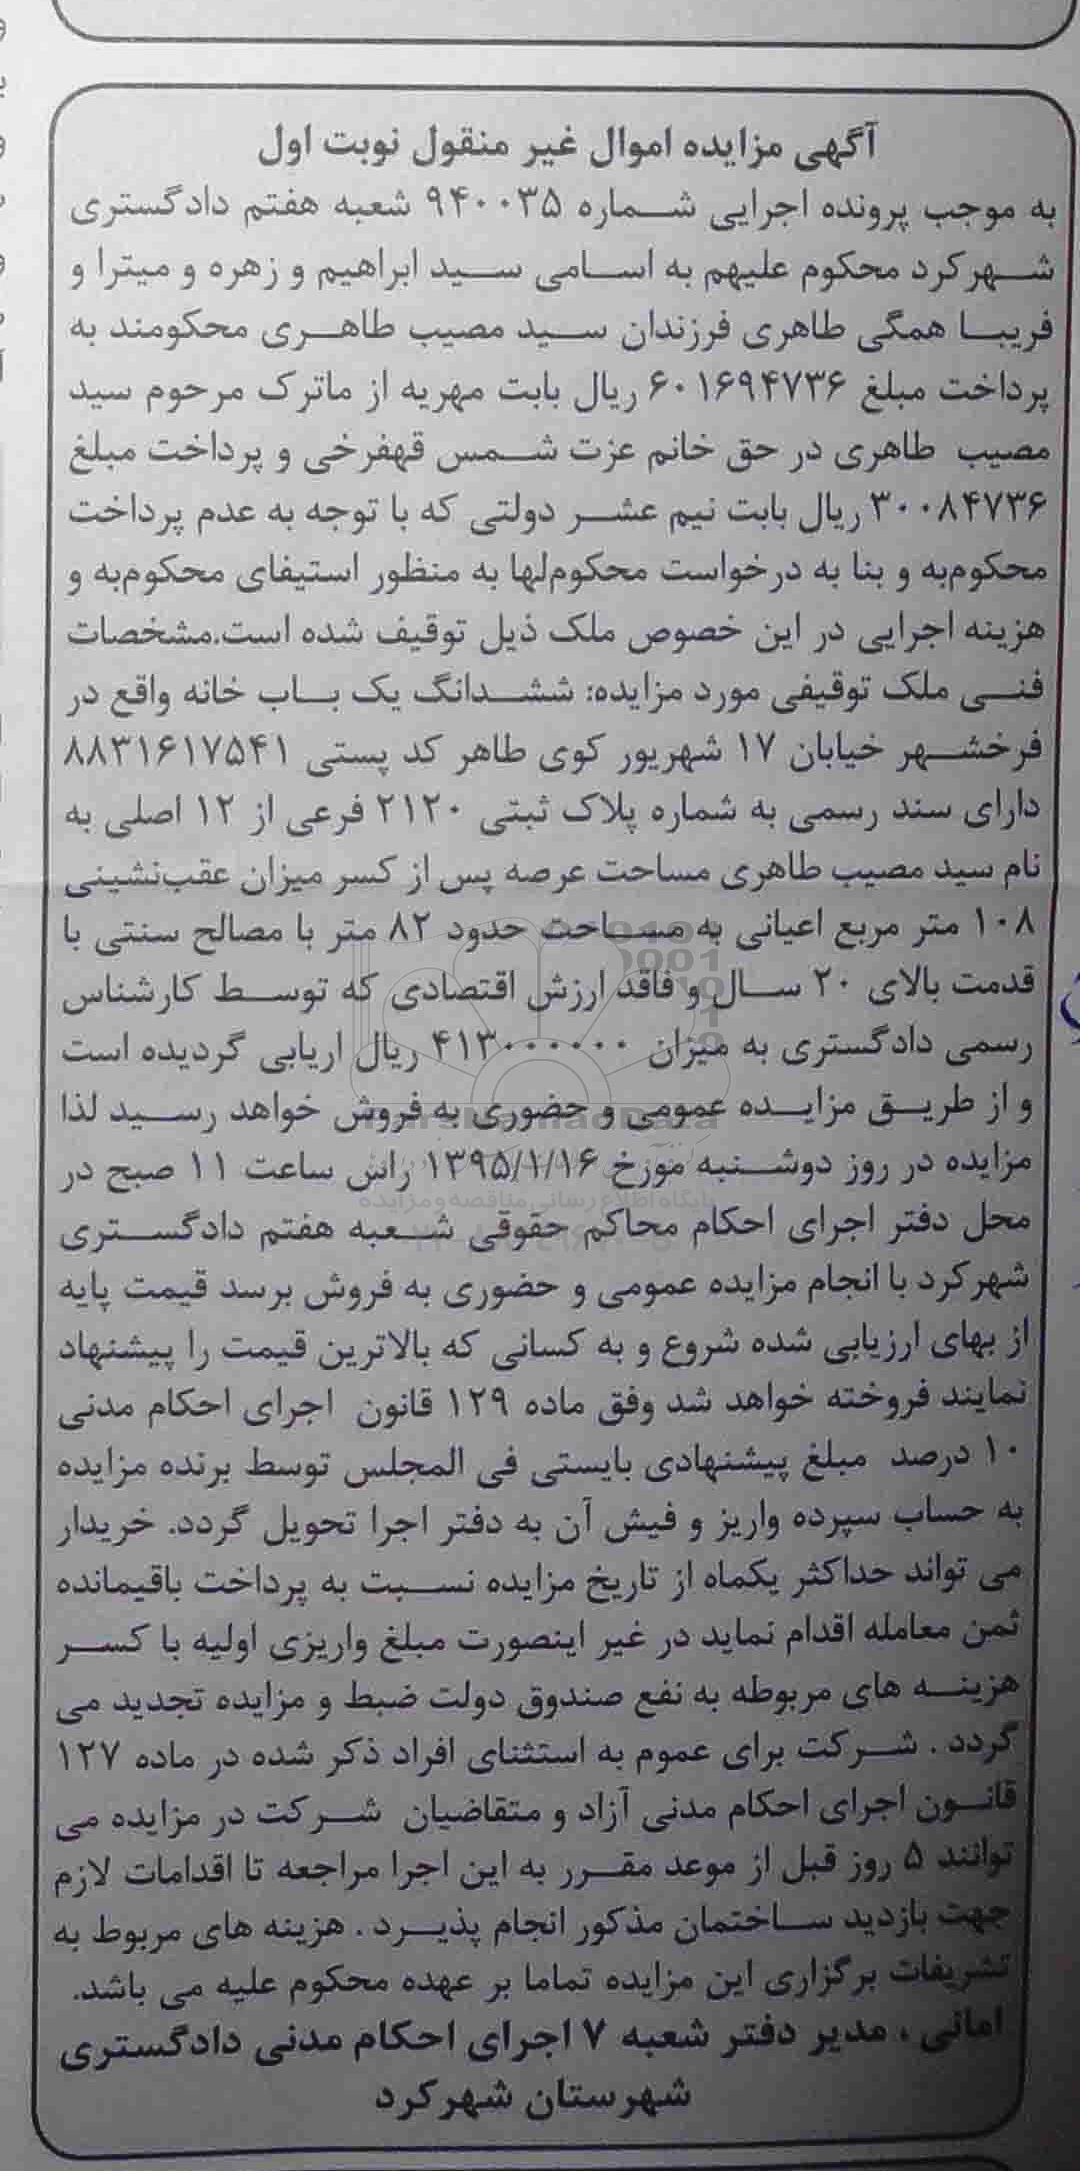 آگهی مزایده اموال غیر منقول نوبت اول
به موجب پرونده اجرایی شماره ۹۴۰۰۳۵ شعبه هفتم دادگستری
شهرکرد محکوم علیهم به اسامی سید ابراهیم و زهره و میترا و
فریبا همگی طاهری فرزندان سید مصیب طاهری محکومند به
پرداخت مبلغ ۶۰۱۶۹۴۷۳۶ ریال بابت مهریه از ماترک مرحوم سید
مصیب طاهری در حق خانم عزت شمس قهفرخی و پرداخت مبلغ
۳۰۰۸۴۷۳۶ ریال بابت نیم عشر دولتی که با توجه به عدم پرداخت
محکوم‌به و بنا به درخواست محکوم‌لها به منظور استیفای محکوم‌به و
هزینه اجرایی در این خصوص ملک ذیل توقیف شده است.مشخصات
فنی ملک توقیفی مورد مزایده: ششدانگ یک باب خانه واقع در
فرخشهر خیابان ۱۷ شهریور کوی طاهر کد پستی ۸۸۳۱۶۱۷۵۴۱
دارای سند رسمی به شماره پلاک ثبتی ۲۱۲۰ فرعی از ۱۲ اصلی به
نام سید مصیب طاهری مساحت عرصه پس از کسر میزان عقب‌نشینی
۱۰۸ متر مربع اعیانی به مساحت حدود ۸۲ متر با مصالح سنتی با
قدمت بالای ۲۰ سال و فاقد ارزش اقتصادی که توسط کارشناس
رسمی دادگستری به میزان ۴۱۳۰۰۰۰۰۰ ریال اریابی گردیده است
و از طریق مزایده عمومی و حضوری به فروش خواهد رسید لذا
مزایده در روز دوشنبه مورخ ۱۳۹۵/۱/۱۶ راس ساعت ۱۱ صبح در
پایگاه اطلاع رسانی مناقصه و مزایده
محل دفتر اجرای احکام محاکم حقوقی شعبه هفتم دادگستری
شهرکرد با انجام مزایده عمومی و حضوری به فروش برسد قیمت پایه
از بهای ارزیابی شده شروع و به کسانی که بالاترین قیمت را پیشنهاد
نمایند فروخته خواهد شد وفق ماده ۱۲۹ قانون اجرای احکام مدنی
۱۰ درصد مبلغ پیشنهادی بایستی فی المجلس توسط برنده مزایده
به حساب سپرده واریز و فیش آن به دفتر اجرا تحویل گردد. خریدار
می تواند حداکثر یکماه از تاریخ مزایده نسبت به پرداخت باقیمانده
ثمن معامله اقدام نماید در غیر اینصورت مبلغ واریزی اولیه با کسر
هزینه های مربوطه به نفع صندوق دولت ضبط و مزایده تجدید می
گردد . شرکت برای عموم به استثنای افراد ذکر شده در ماده ۱۲۷
قانون اجرای احکام مدنی آزاد و متقاضیان شرکت در مزایده می
توانند ۵ روز قبل از موعد مقرر به این اجرا مراجعه تا اقدامات لازم
جهت بازدید ساختمان مذکور انجام پذیرد . هزینه های مربوط به
تشریفات برگزاری این مزایده تماما بر عهده محکوم علیه می باشد.
امانی ، مدیر دفتر شعبه ۷ اجرای احکام مدنی دادگستری
شهرستان شهرکرد